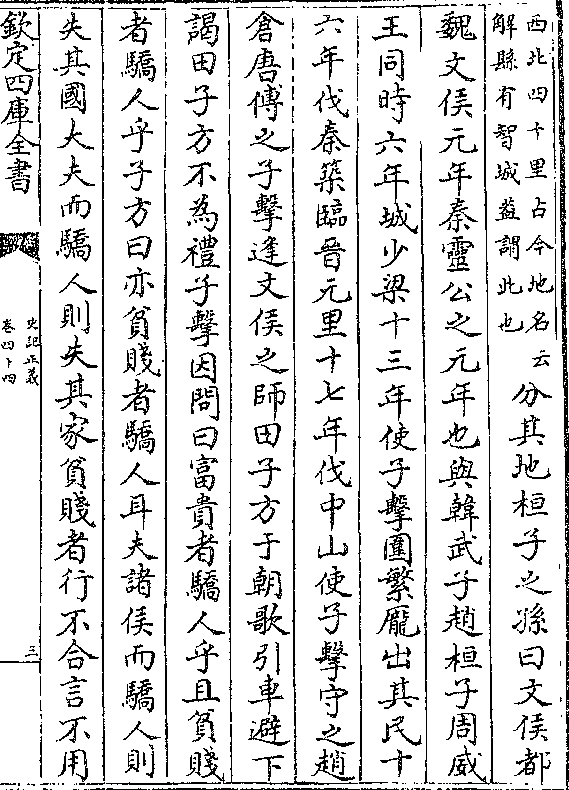 西北四十里占今地名云
解縣有智城葢謂此也
分其地桓子之孫曰文侯都
魏文侯元年秦靈公之元年也與韓武子趙桓子周威
王同時六年城少梁十三年使子擊圍繁龐出其民十
六年伐秦築臨晉元里十七年伐中山使子擊守之趙
倉唐傅之子擊逢文侯之師田子方于朝歌引車避下
謁田子方不為禮子擊因問曰富貴者驕人乎且貧賤
者驕人乎子方曰亦貧賤者驕人耳夫諸侯而驕人則
失其國大夫而驕人則失其家貧賤者行不合言不用
欽定四庫全書
史記正義
卷四十四
三